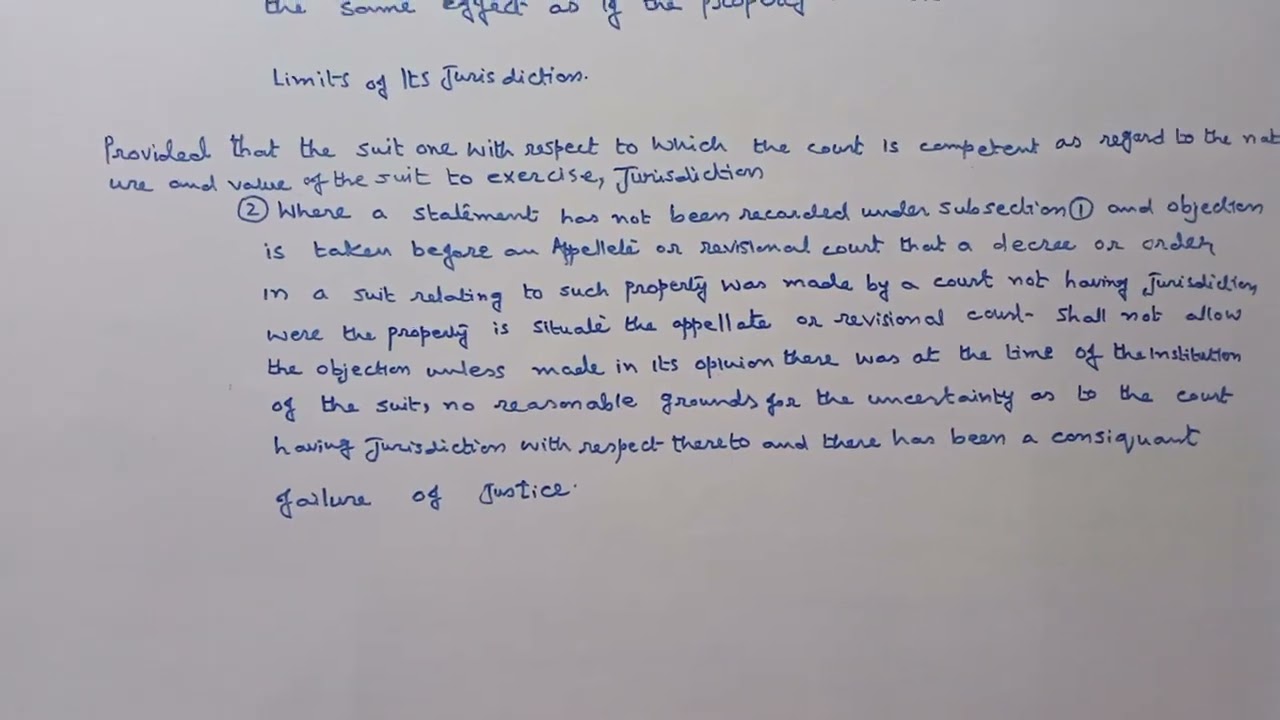 the same effect as if the property
Limits of Its Jurisdiction.
Provided that the suit one with respect to which the court is competent as regard to the nat
ure and value of the suit to exercise, Jurisdiction
② Where a statement has not been recarded under subsection ① and objection
is taken before an Appellete or revisional court that a decree or order
in a suit relating to such property was made by a court not having Jurisdiction,
were the property is situate the appellate or revisional court shall not allow
the objection unless made in its opinion there was at the time of the Institution
of the suit, no reasonable grounds for the uncertainty as to the court
having Jurisdiction with respect thereto and there has been a consiquant
failure of Justice.